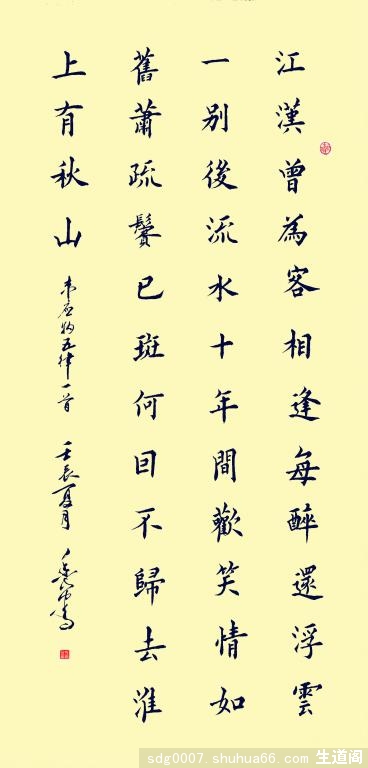 江漢曾為客相逢每醉還浮雲
一別後流水十年間歡笑情如
舊蕭疏鬢已斑何囙不歸去淮
上有秋山 韋應物五律一首 壬辰夏月
sdg0007.shuhua66.com 生道阁